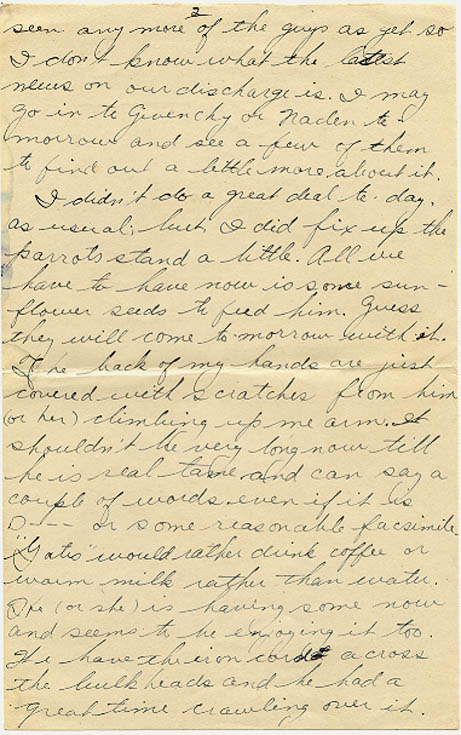 2
seen any more of the guys as yet so
I don't know what the latest
news on our discharge is. I may
go in to Givenchy or Naden to-
morrow and see a few of them
to find out a little more about it.
I didn't do a great deal to-day,
as usual, but I did fix up the
parrots stand a little. All we
have to have now is some sun-
flower seeds to feed him. Guess
they will come to-morrow with it.
The back of my hands are just
covered with scratches from him
(or her) climbing up me arm. It
shouldn't be very long now till
he is real tame and can say a
couple of words even if it is
D--- or some reasonable facsimile.
would rather drink coffee or
warm milk rather than water.
He (or she) is having some now
and seems to be enjoying it too.
We have the iron cord across
the bulkheads and he had a
great time crawling over it.